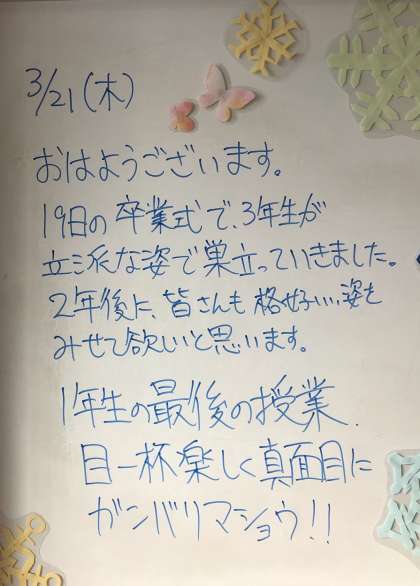 3/21(木)
おはようございます。
19日の卒業式で、3年生が
立派な姿で巣立っていきました。
2年後に、皆さんも格好いい姿を
みせて欲しいと思います。
1年生の最後の授業、
目一杯楽しく真面目に
ガンバリマショウ!!